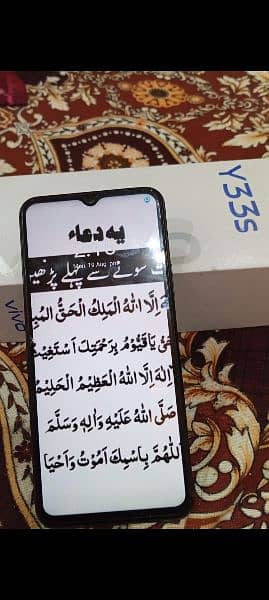 یہ دعاء
Mon, 19 Aug
سونے سے پہلے پڑھیں
اِلَّا اللّٰهُ الْمَلِكُ الْحَقُّ
یَاقَیُّوْمُ بِرَحْمَتِكَ اَسْتَغِیْثُ
اِلٰهَ اِلَّا اللّٰهُ الْعَظِیْمُ الْحَلِیْمُ
صَلَّی اللّٰهُ عَلَیْهِ وَاٰلِهٖ وَسَلَّمَ
اَللّٰهُمَّ بِاسْمِكَ اَمُوْتُ وَاَحْیَا
Y33s
vivo